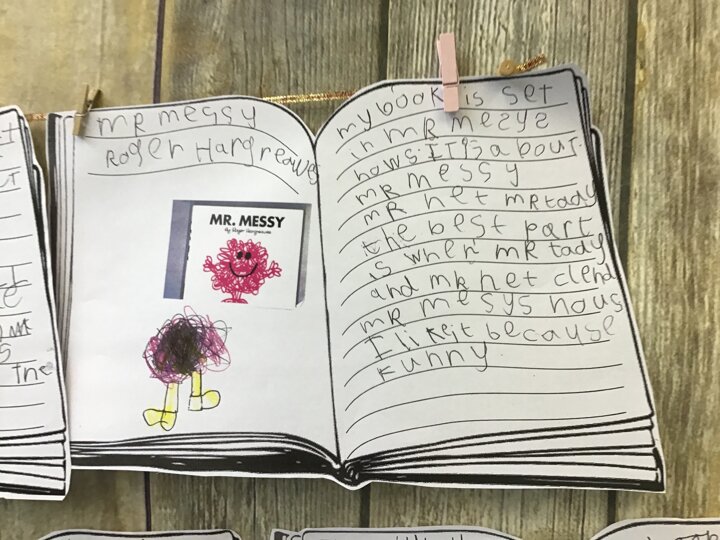 mR messy
Roger Hargreaves
MR. MESSY
By Roger Hargreaves
my book is set
in mR mesys
hows. IT is about
mR messy
mR net mR tady
the best part
is when mR tady
and mR net clend
mR mesys hous
I like it because
Kunny